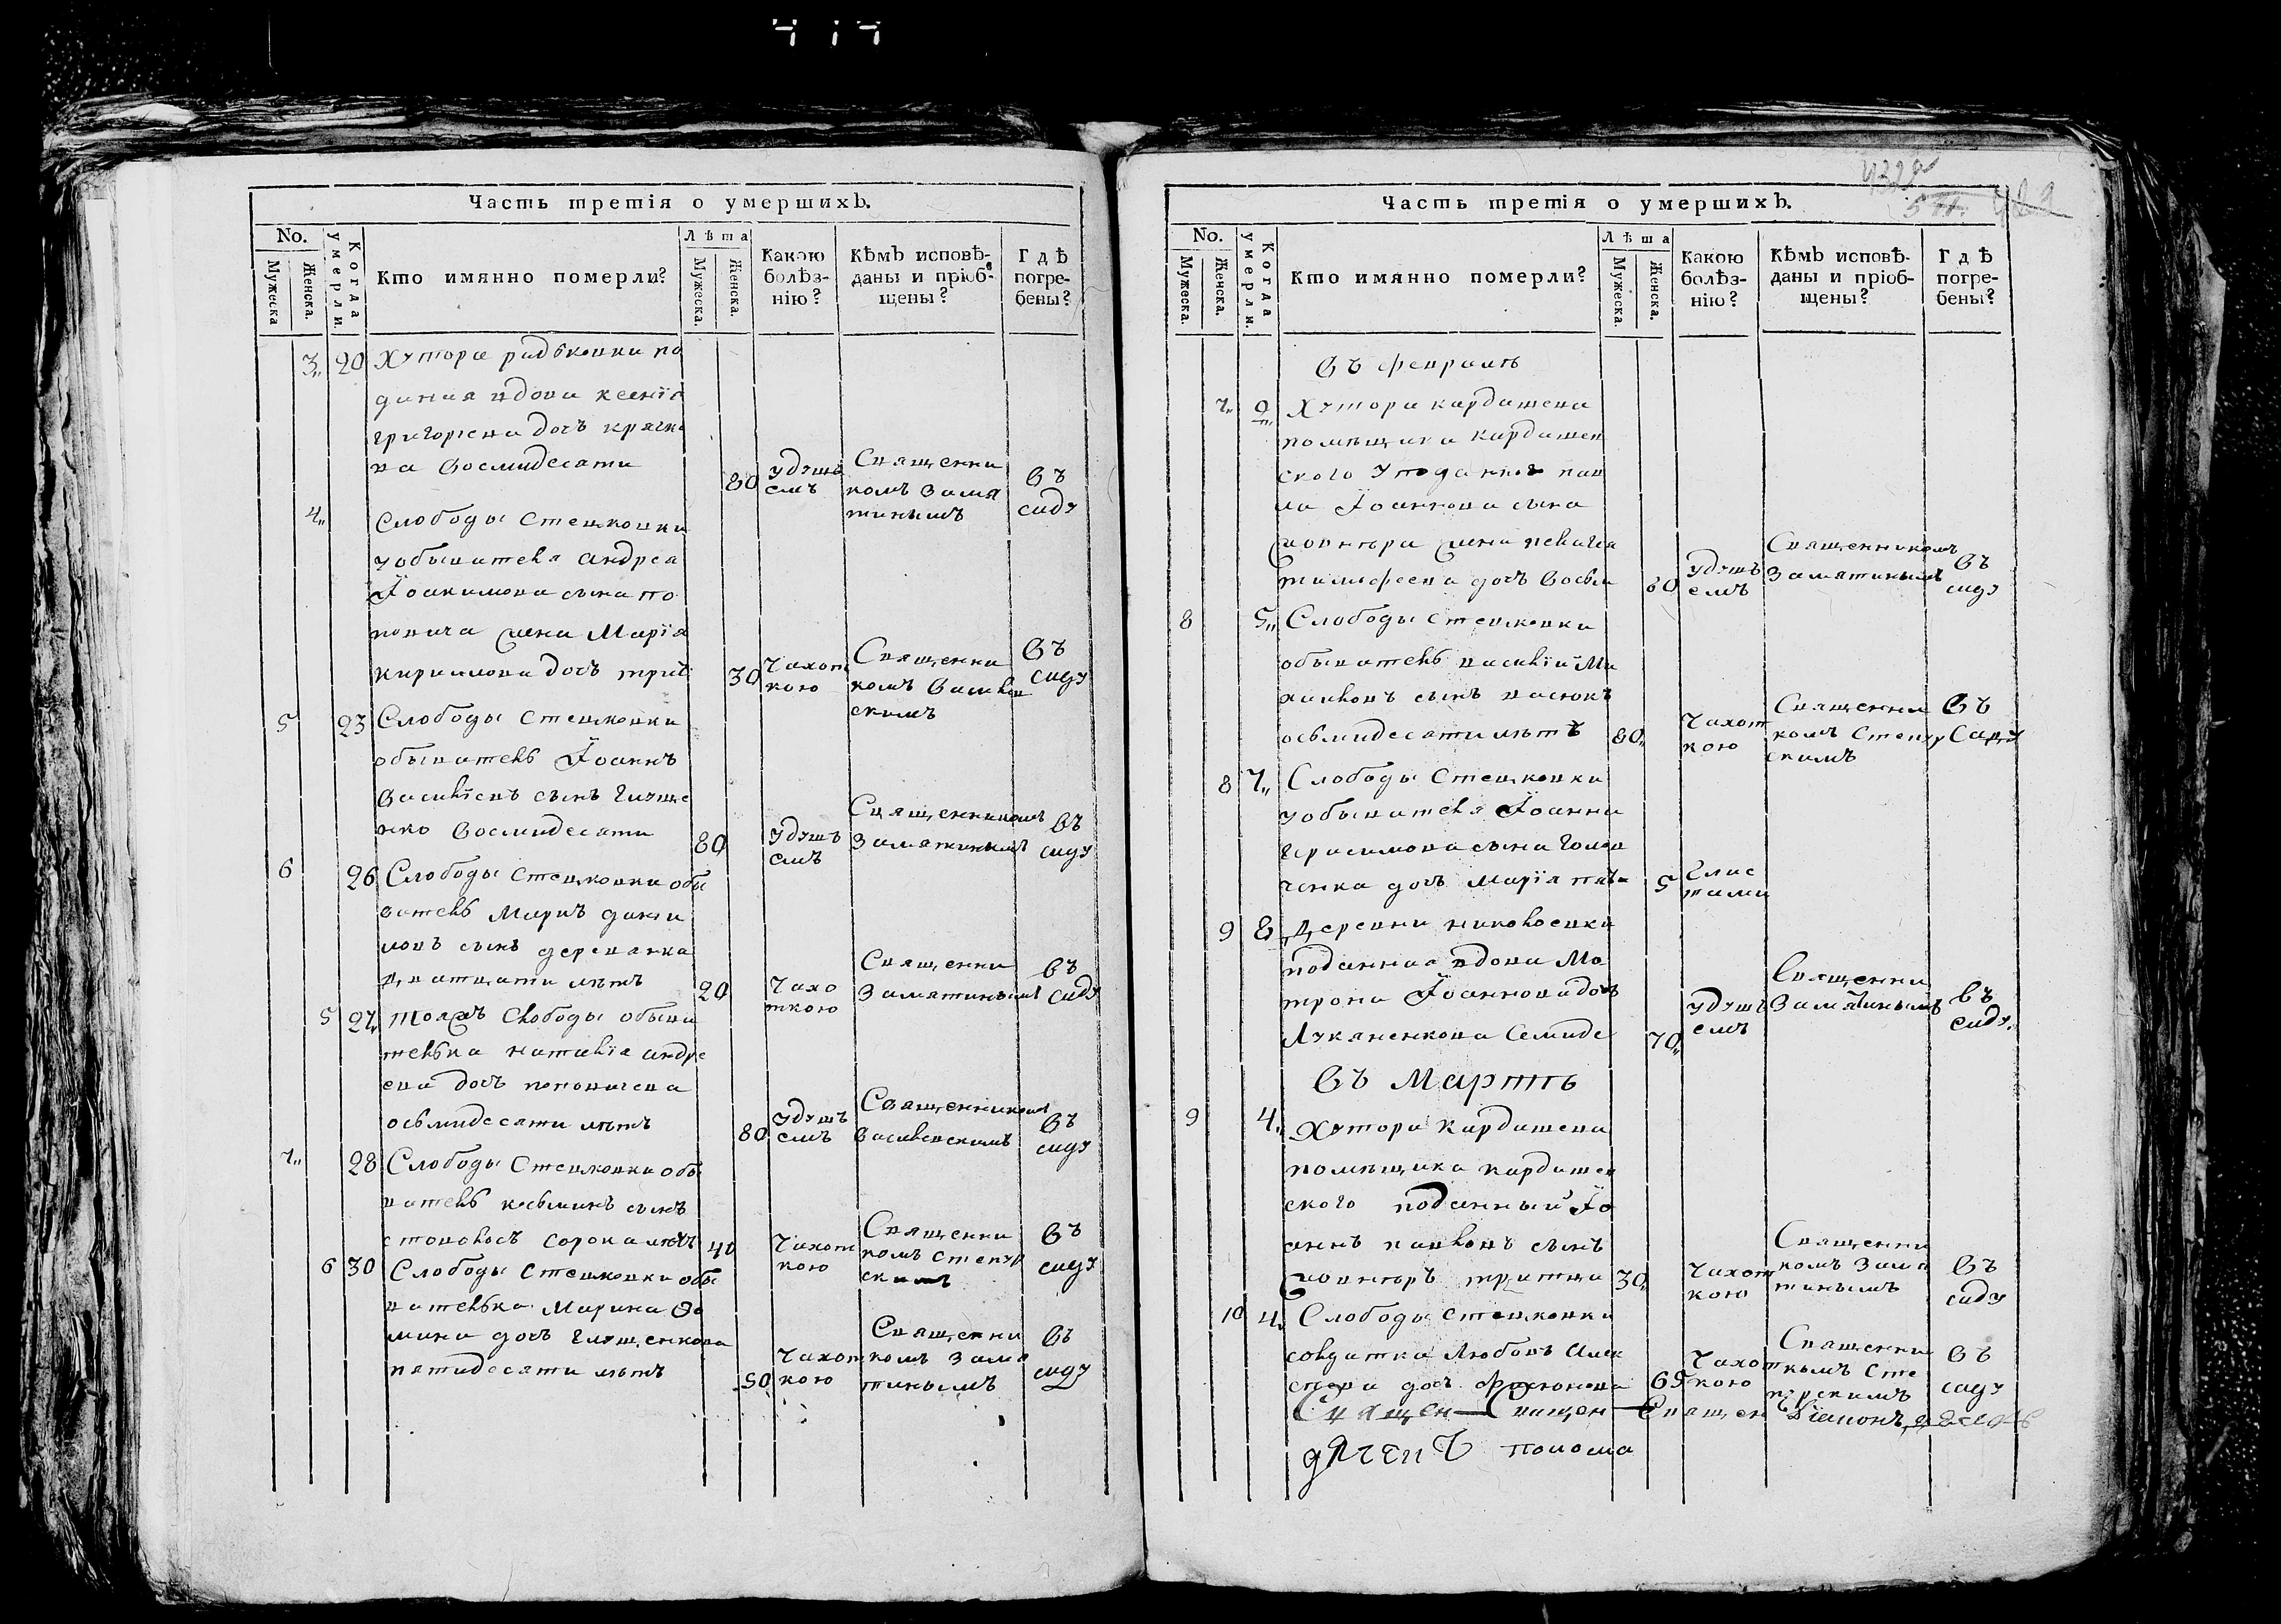 Часть третія о умершихъ.
No. Мужеска Женска. Когда умерли. Кто имянно померли? Лѣта Мужеска. Женска. Какою болѣзнію? Кѣмъ исповѣданы и пріобщены? Гдѣ погребены?
3 20 Хутора
даная вдова ксенїя
григориева дочъ
ва восмидесяти 80 удушьемъ Священникомъ Замятинымъ Въ саду
4 Слободы Стецковки
у обывателя андрея
Іоакимова сына по
повича жена Марїя
дочъ 30 Чахоткою Священникомъ Василевскимъ Въ саду
5 23 Слободы Стецковки
обыватель Іоаннъ
Василїевъ сынъ
нко восмидесяти 80 удушьемъ Священникомъ Замятинымъ въ саду
6 26 Слободы Стецковки обы
ватель Маркъ дани
ловъ сынъ
дватцати лѣтъ 20 Чахоткою Священни Замятинымъ въ саду
5 27 тояжъ Слободы обыва
телька наталїя андре
ева дочъ поповичева
осьмидесяти лѣтъ 80 удушьемъ Священникомъ Василевскимъ Въ саду
7 28 Слободы Стецковки обы
ватель козьминъ сынъ
сорока лѣтъ 40 Чахоткою Священникомъ Въ саду
6 30 Слободы Стецковки обы
вателька Марина Фо
мина дочъ
пятидесяти лѣтъ 50 Чахоткою Священникомъ Замятинымъ въ саду
Часть третія о умершихъ.
No. Мужеска. Женска. Когда умерли. Кто имянно померли? Лѣта Мужеска. Женска. Какою болѣзнію? Кѣмъ исповѣданы и пріобщены? Гдѣ погребены?
въ февралѣ
7 2 Хутора кардашева
помѣщика кардашев
ского у подданнаго пав
ла Іоаннова сына
жена
тимофеева дочъ восьм 80 удушьемъ Священникомъ Замятинымъ въ саду
8 5 Слободы Стецковки
обыватель василїй Ми
хайловъ сынъ
осьмидесяти лѣтъ 80 Чахоткою Священникомъ Въ Саду
8 7 Слободы Стецковки
у обывателя Іоанна
Герасимова сына
ченка дочъ Марїя 5 Глистами
9 8 Деревни николаевки
подданная вдова Ма
трона Іоаннова дочъ
Луканенкова Семиде 70 удушьемъ Священни Замятинымъ въ саду
Въ Мартѣ
9 4 Хутора кардашева
помѣщика кардашев
ского подданный Іо
аннъ павловъ сынъ
тритца 30 Чахоткою Священникомъ Замятинымъ Въ саду
10 4 Слободы Стецковки
солдатка Любовъ Алек
сѣева дочъ 65 Чахоткою Священникомъ Въ саду
Священ Священ Священ Дїаконъ
дячекъ